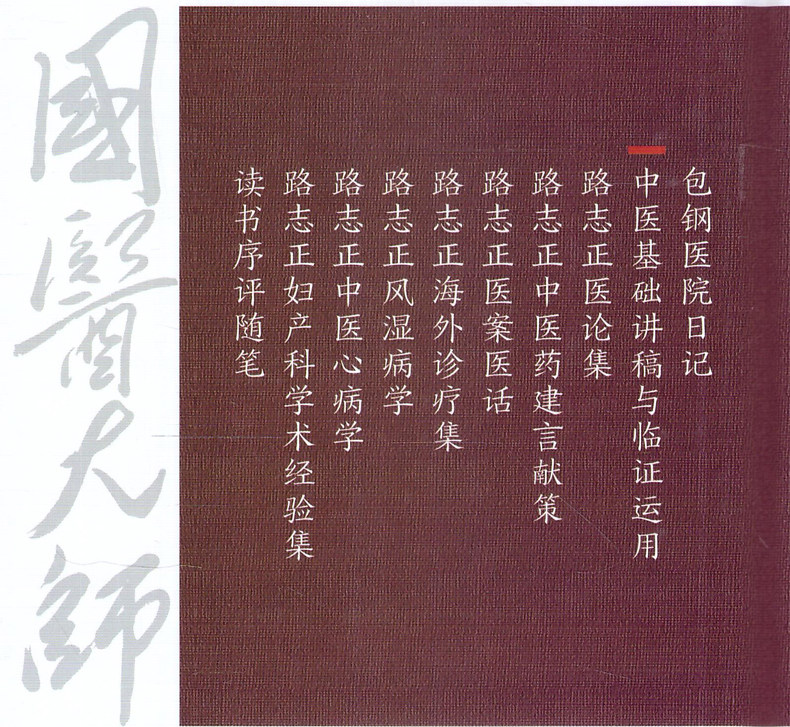 包钢医院日记
中医基础讲稿与临证运用
路志正医论集
路志正中医药建言献策
路志正医案医话
路志正海外诊疗集
路志正风湿病学
路志正中医心病学
路志正妇产科学术经验集
读书序评随笔
國醫大師